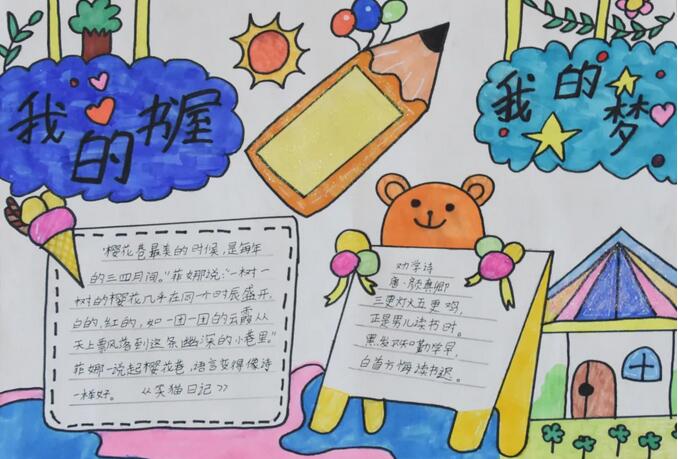 我的书屋
我的梦
"樱花巷最美的时候,是每年
的三四月间。"菲娜说:"一树一
树的樱花几乎在同个时辰盛开,
白的,红的,如一团一团的云霞从
天上飘落到这条幽深的小巷里。"
菲娜一说起樱花巷,语言变得像诗
一样好。 《笑猫日记》
劝学诗
唐·颜真卿
三更灯火五更鸡,
正是男儿读书时。
黑发不知勤学早,
白首方悔读书迟。